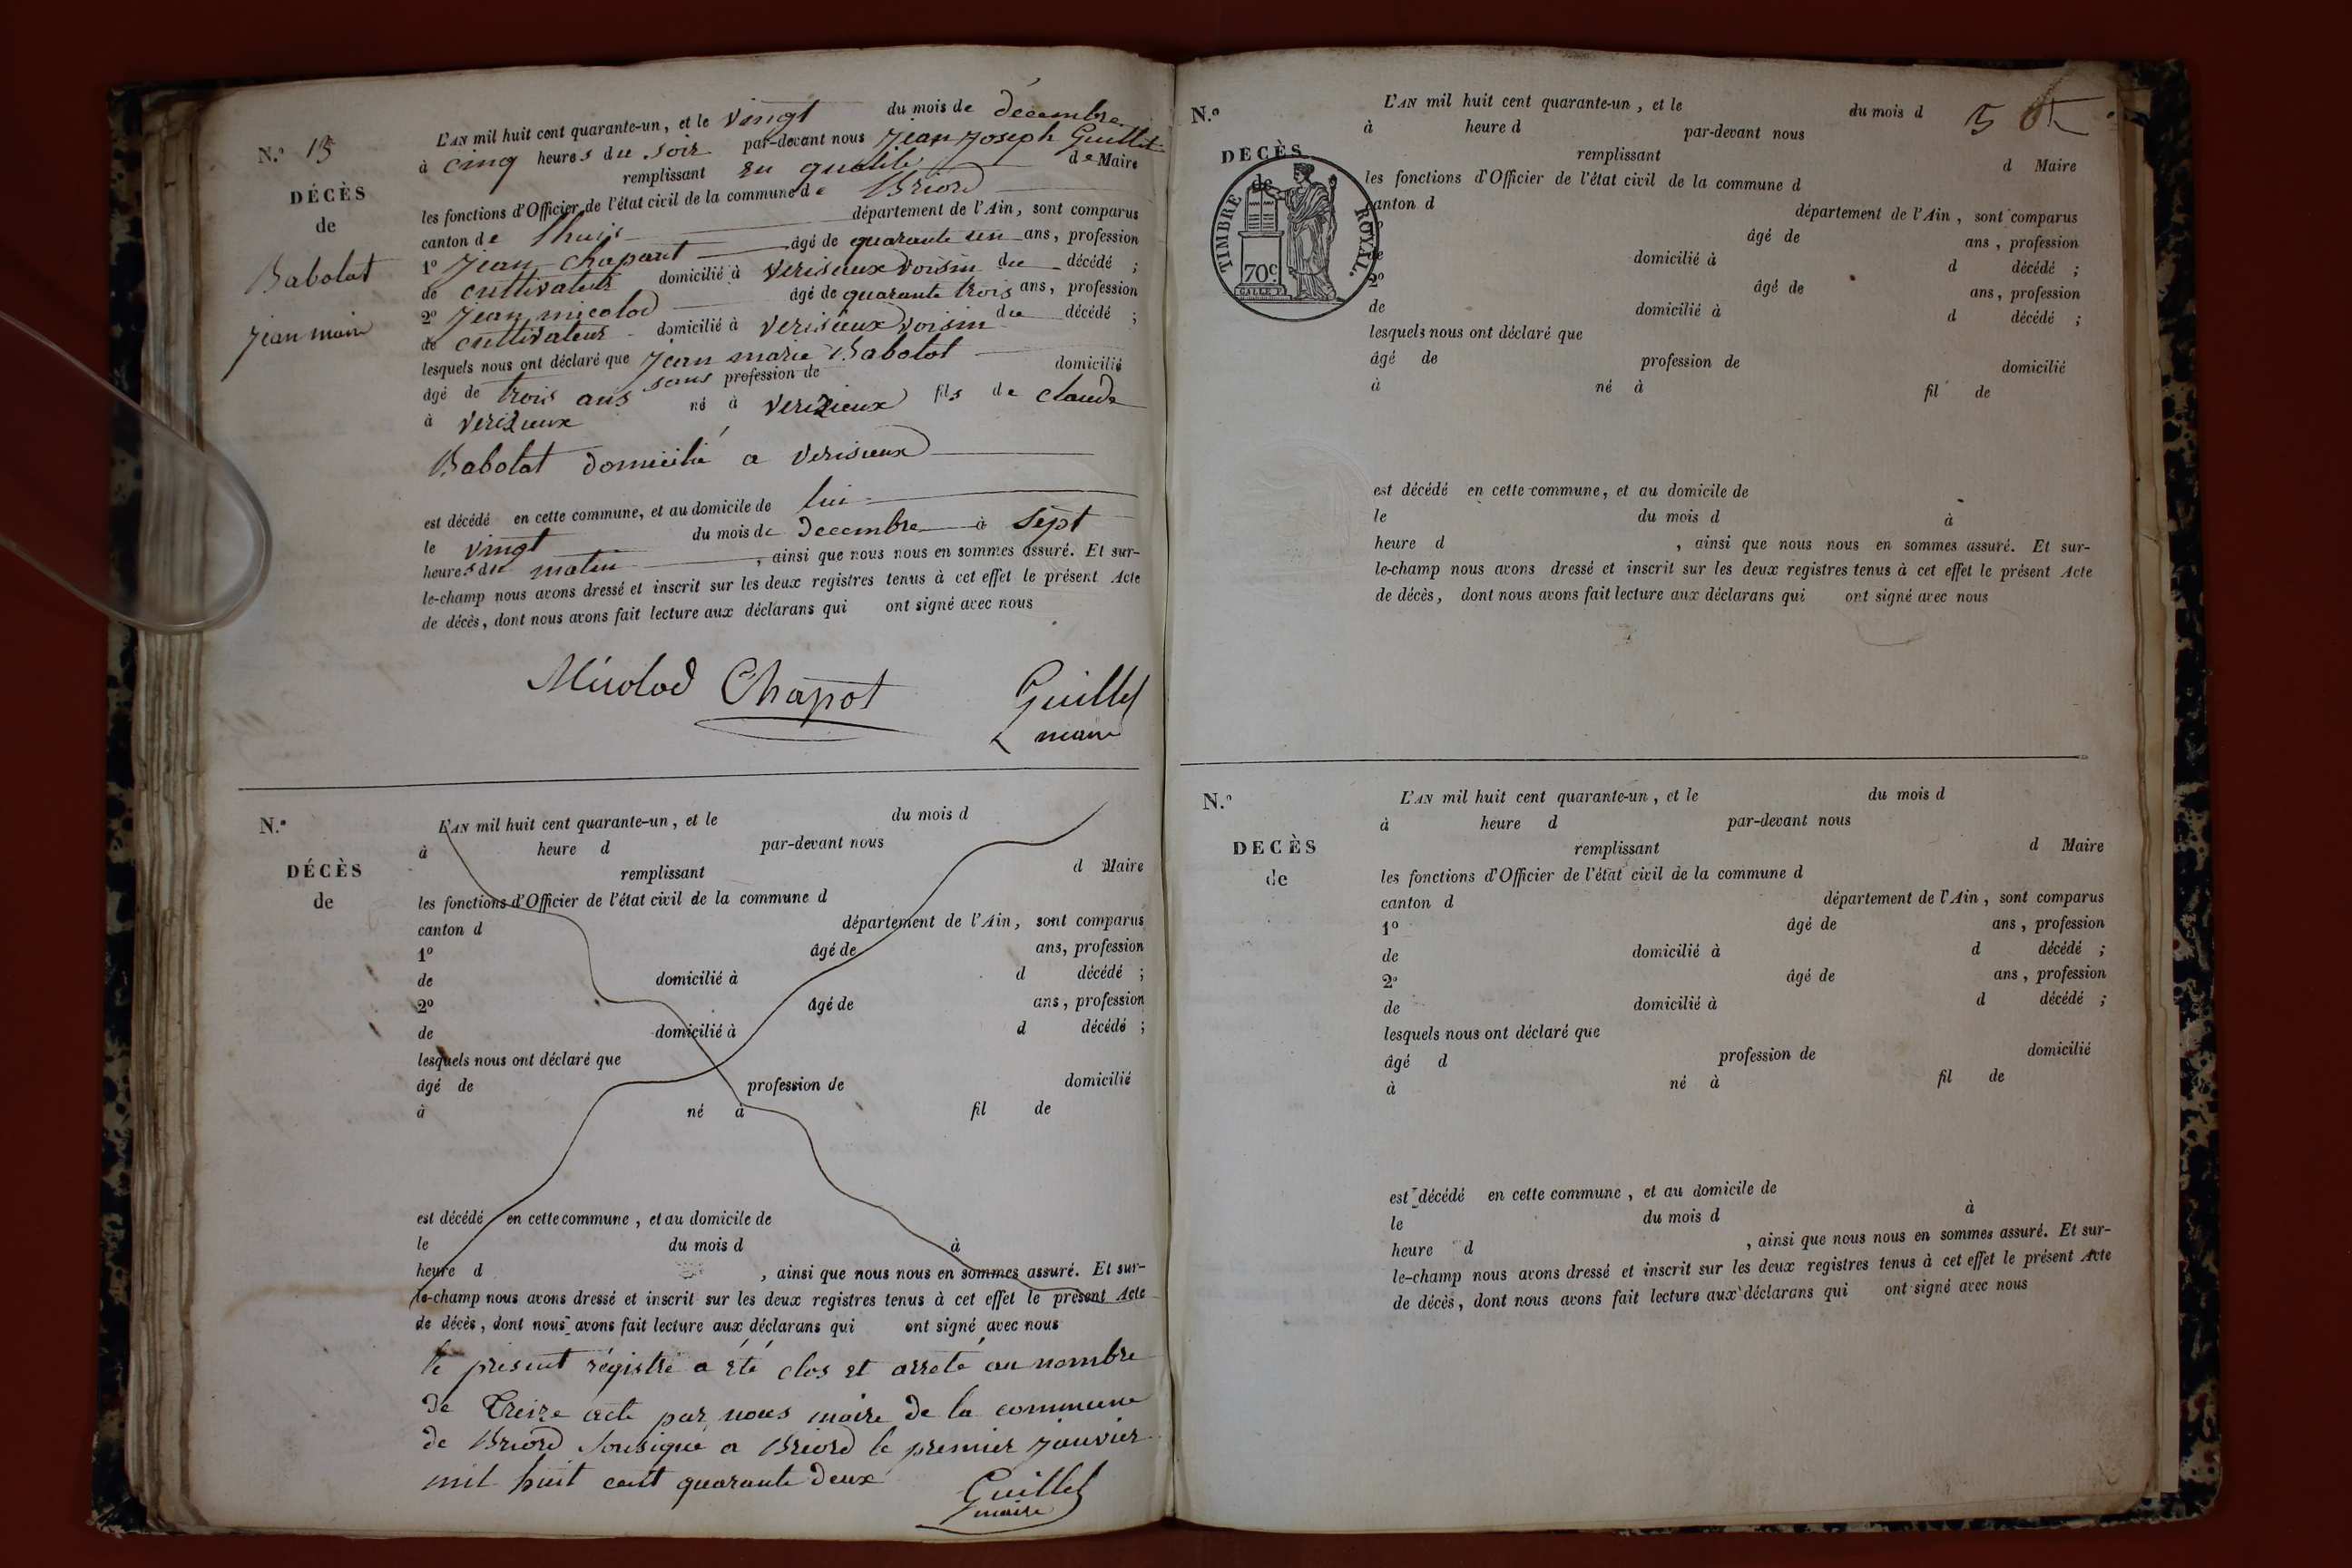 N.º 13
DÉCÈS
de
Babolat
Jean marie
L'AN mil huit cent quarante-un, et le vingt du mois de décembre
à cinq heures du soir par-devant nous Jean Joseph Guillet
remplissant en qualité de Maire
les fonctions d'Officier de l'état civil de la commune de Briord
canton de Lhuis département de l'Ain, sont comparus
1º Jean Chapant âgé de quarante un ans, profession
de cultivateur domicilié à verisieux voisin du décédé ;
2º Jean micolod âgé de quarante trois ans, profession
de cultivateur domicilié à verisieux voisin du décédé ;
lesquels nous ont déclaré que Jean marie Babolat
âgé de trois ans sans profession de domicilié
à verizieux né à verizieux fils de claude
Babolat domicilié a verisieux
est décédé en cette commune, et au domicile de lui
le vingt du mois de decembre à sept
heures du matin , ainsi que nous nous en sommes assuré. Et sur-
le-champ nous avons dressé et inscrit sur les deux registres tenus à cet effet le présent Acte
de décès, dont nous avons fait lecture aux déclarans qui ont signé avec nous
Micolod Chapot Guillet
maire
N.º
DÉCÈS
de
L'AN mil huit cent quarante-un, et le du mois d
à heure d par-devant nous
remplissant d Maire
les fonctions d'Officier de l'état civil de la commune d
canton d département de l'Ain, sont comparus
1º âgé de ans, profession
de domicilié à d décédé ;
2º âgé de ans, profession
de domicilié à d décédé ;
lesquels nous ont déclaré que
âgé de profession de domicilié
à né à fil de
est décédé en cette commune, et au domicile de
le du mois d à
heure d , ainsi que nous nous en sommes assuré. Et sur-
le-champ nous avons dressé et inscrit sur les deux registres tenus à cet effet le présent Acte
de décès, dont nous avons fait lecture aux déclarans qui ont signé avec nous
le présent régistre a été clos et arreté au nombre
de Treize acte par nous maire de la commune
de Briord sousigné a Briord le premier janvier
mil huit cent quarante deux
Guillet
maire
N.º
DECÈS
de
TIMBRE ROYAL.
70c
L'AN mil huit cent quarante-un, et le du mois d
à heure d par-devant nous
remplissant d Maire
les fonctions d'Officier de l'état civil de la commune d
canton d département de l'Ain, sont comparus
âgé de ans, profession
de domicilié à d décédé ;
2º âgé de ans, profession
de domicilié à d décédé ;
lesquels nous ont déclaré que
âgé de profession de domicilié
à né à fil de
est décédé en cette commune, et au domicile de
le du mois d à
heure d , ainsi que nous nous en sommes assuré. Et sur-
le-champ nous avons dressé et inscrit sur les deux registres tenus à cet effet le présent Acte
de décès, dont nous avons fait lecture aux déclarans qui ont signé avec nous
N.º
DECÈS
de
L'AN mil huit cent quarante-un, et le du mois d
à heure d par-devant nous
remplissant d Maire
les fonctions d'Officier de l'état civil de la commune d
canton d département de l'Ain, sont comparus
1º âgé de ans, profession
de domicilié à d décédé ;
2º âgé de ans, profession
de domicilié à d décédé ;
lesquels nous ont déclaré que
âgé d profession de domicilié
à né à fil de
est décédé en cette commune, et au domicile de
le du mois d à
heure d , ainsi que nous nous en sommes assuré. Et sur-
le-champ nous avons dressé et inscrit sur les deux registres tenus à cet effet le présent Acte
de décès, dont nous avons fait lecture aux déclarans qui ont signé avec nous